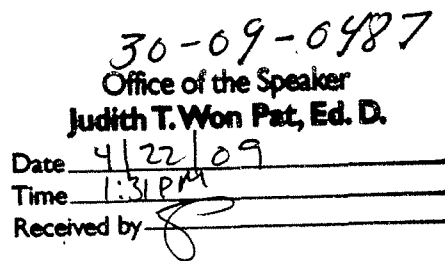 30-09-0487
Office of the Speaker
Judith T. Won Pat, Ed. D.
Date 4/22/09
Time 1:31 PM
Received by